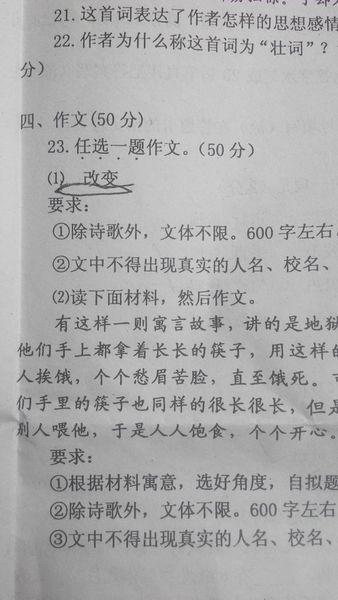 21.这首词表达了作者怎样的思想感情
22.作者为什么称这首词为“壮词”?
分)
四、作文(50分)
23.任选一题作文。(50分)
⑴ 改变
要求:
①除诗歌外，文体不限。600字左右
②文中不得出现真实的人名、校名、
⑵读下面材料，然后作文。
有这样一则寓言故事，讲的是地狱
他们手上都拿着长长的筷子，用这样的
人挨饿，个个愁眉苦脸，直至饿死。
们手里的筷子也同样的很长很长，但是
别人喂他，于是人人饱食，个个开心。
要求:
①根据材料寓意，选好角度，自拟题
②除诗歌外，文体不限。600字左右
③文中不得出现真实的人名、校名、